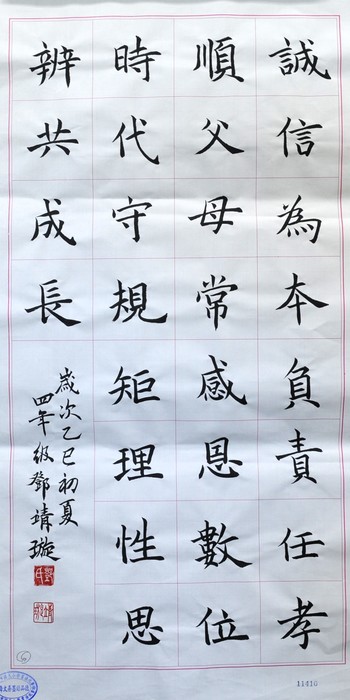 誠信為本負責任孝
順父母常感恩數位
時代守規矩理性思
辨共成長
歲次乙巳初夏
四年級鄧靖璇
11410
6